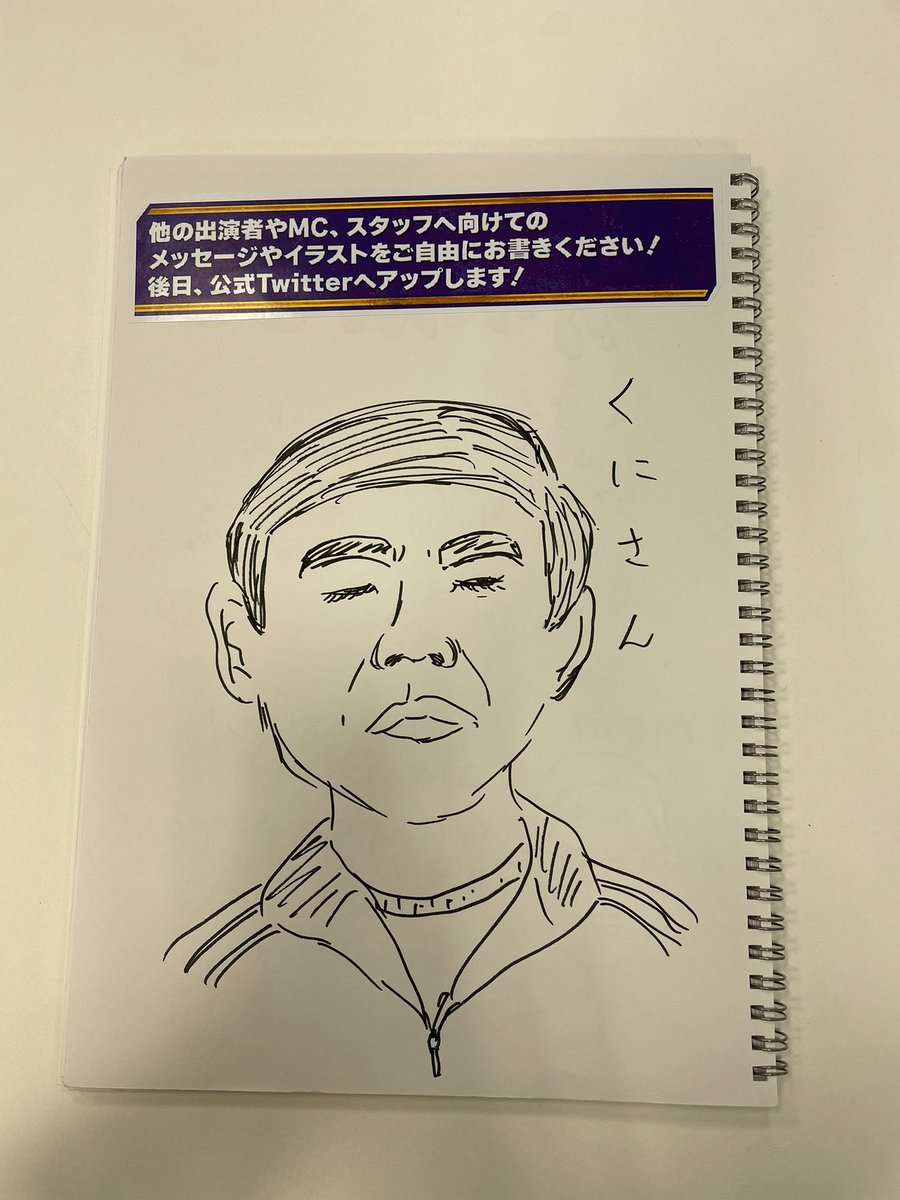 他の出演者やMC、スタッフへ向けての
メッセージやイラストをご自由にお書きください!
後日、公式Twitterへアップします!
くにさん